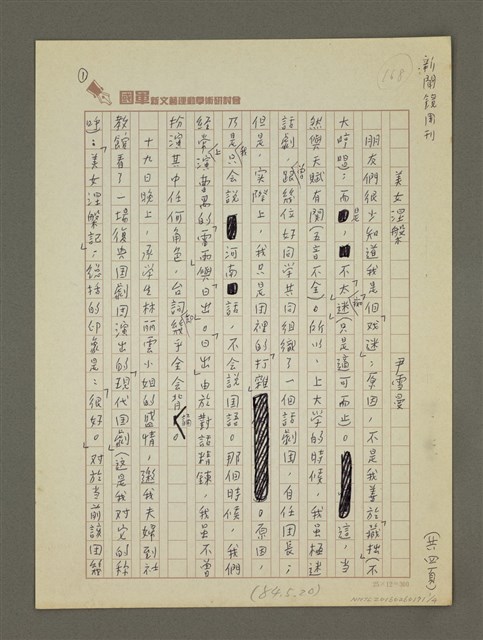 新聞鏡周刊
168
①
國軍新文藝運動學術研討會
美女涅槃
尹雪曼
(共四頁)
朋友們很少知道我是個「戏迷」；原因，不是我善於「藏拙」(不
大吟唱；而是，不太「迷」(只是適可而止)。這，当
然與天賦有関(五音不全)。所以，上大学的時候，我虽極迷
話劇，曾跟幾位好同学共同組織了一個話劇団，自任団長；
但是，実際上，我只是団裡的「打雜」。原因，
乃是我只会說河南話，不会說国語。那個時候，我們
經常演曹禺的「雷雨」與「日出」。「日出」由於對話精鍊，我虽不曾
扮演其中任何角色，台詞卻幾乎全会背誦。
十九日晚上，承学生林丽雲小姐的盛情，邀我夫婦到社
教館看了一場復興国劇団演出的「現代国劇」(這是我对它的称
呼：「美女涅槃記」；総括的印象是：「很好」。对於当前該団能
25×12=300
(84.5.20)